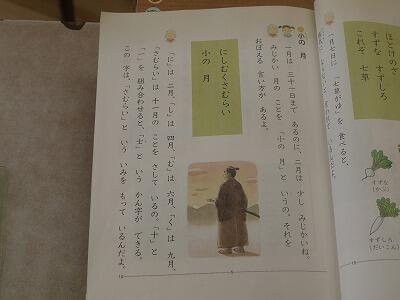 ほとけのざ
すずな すずしろ
これぞ 七草
一月七日に 「七草がゆ」を 食べると、
すずな
(かぶ)
すずしろ
(だいこん)
小の 月
一月は 三十一日まで あるのに、二月は 少し みじかいね。
みじかい 月の ことを 「小の 月」と いうの。それを
おぼえる 言い方が あるよ。
にしむくさむらい
小の 月
「に」は 二月、「し」は 四月、「む」は 六月、「く」は 九月、
「さむらい」は 十一月の ことを さして いるの。「十」と
「一」を 組み合わせると、「士」と いう かん字が できる。
この 字は、「さむらい」と いう いみを もって いるんだよ。